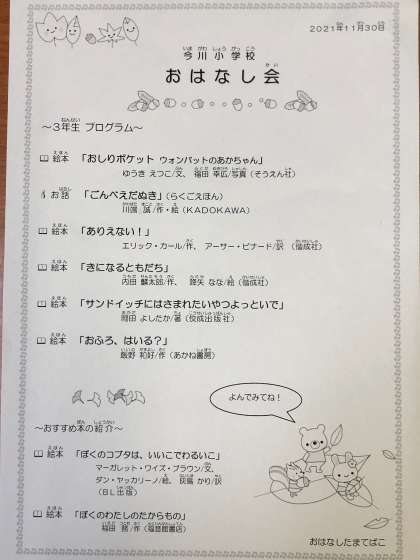 2021年11月30日
今川小学校
おはなし会
～3年生 プログラム～
絵本 「おしりポケット ウォンバットのあかちゃん」
ゆうき えつこ/文、 福田 幸広/写真（そうえん社）
お話 「ごんべえだぬき」（らくごえほん）
川端 誠/作・絵（KADOKAWA）
絵本 「ありえない！」
エリック・カール/作、 アーサー・ビナード/訳（偕成社）
絵本 「きになるともだち」
内田 麟太郎/作、 降矢 なな/絵（偕成社）
絵本 「サンドイッチにはさまれたいやつよっといで」
岡田 よしたか/著（佼成出版社）
絵本 「おふろ、はいる？」
飯野 和好/作（あかね書房）
よんでみてね！
～おすすめ本の紹介～
絵本 「ぼくのコブタは、いいこでわるいこ」
マーガレット・ワイズ・ブラウン/文、
ダン・ヤッカリーノ/絵、 灰島 かり/訳
（BL出版）
絵本 「ぼくのわたしのたからもの」
（福音館書店）
おはなしたまてばこ